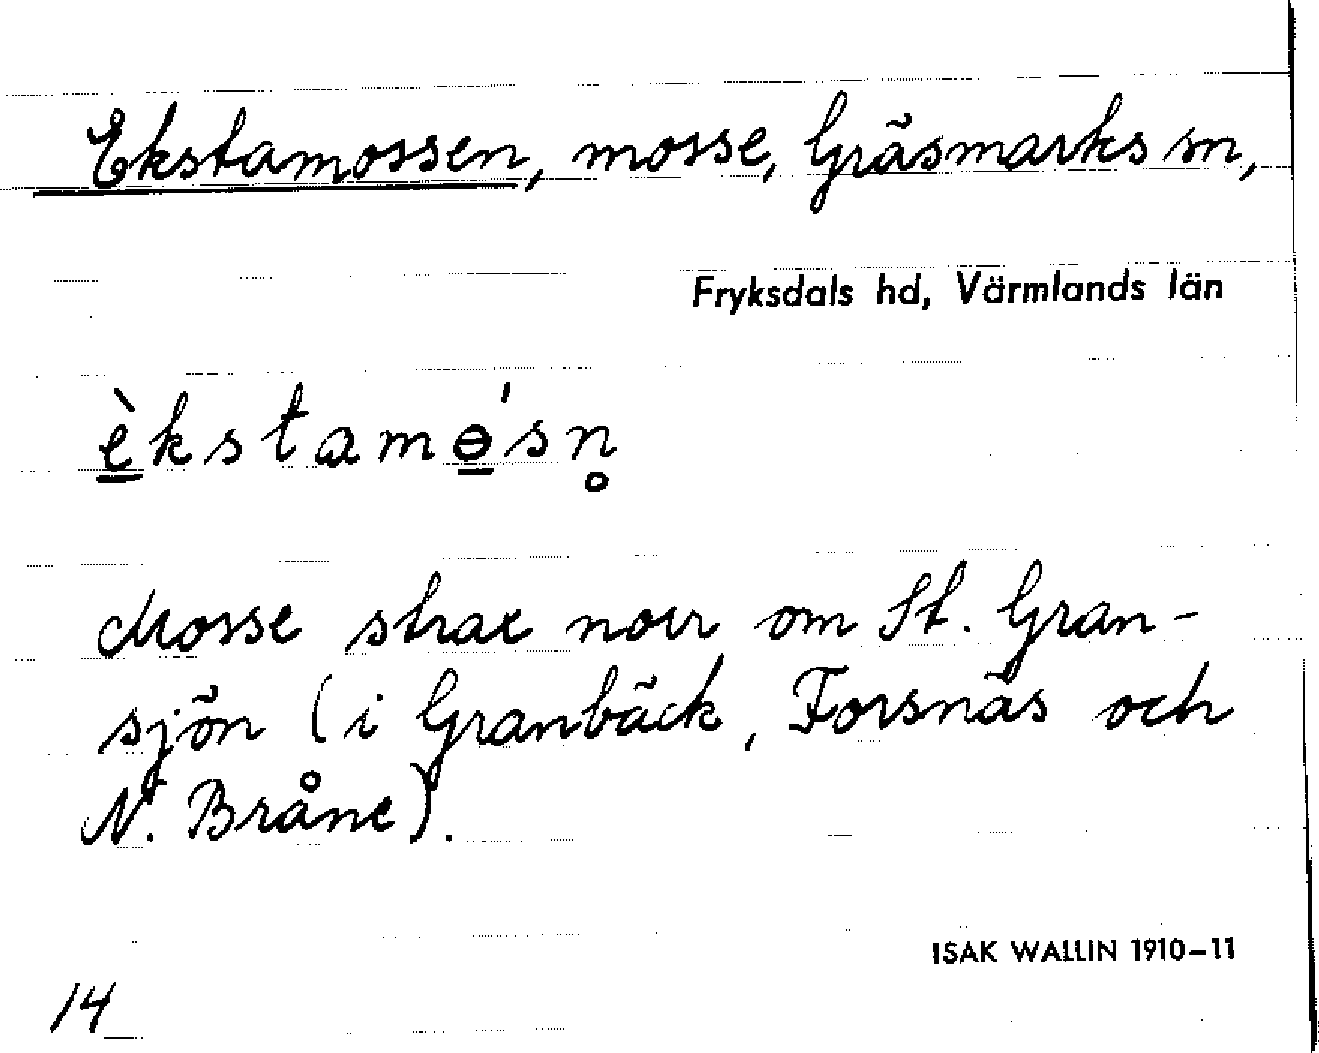 Ekstamossen, mosse, Gräsmarks sn,
Fryksdals hd, Värmlands län
è̠kstamɵ̠́sn̥
Mosse strax norr om St. Gran-
sjön (i Granbäck, Forsnäs och
N. Bråne).
ISAK WALLIN 1910–11
14